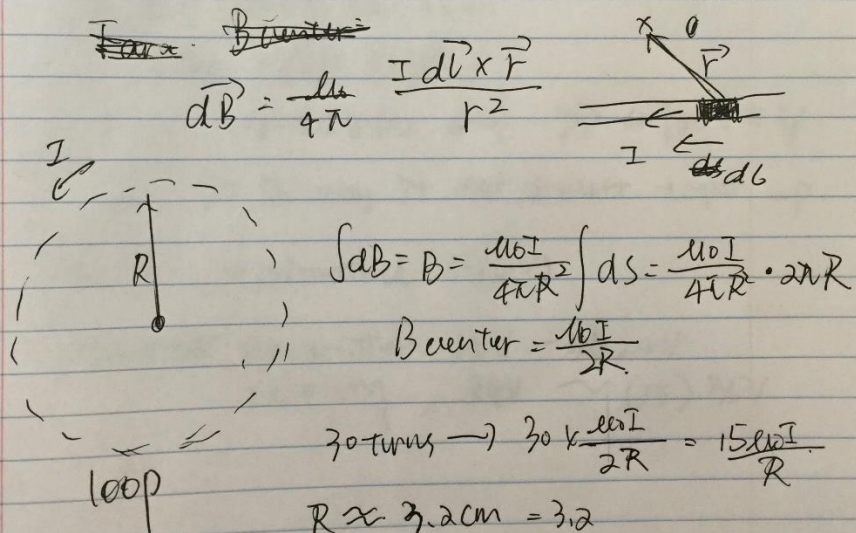 dB⃗ = μ₀/4π I dl⃗ × r⃗ / r²
x
r⃗
I
dl
I
R
loop
∫dB = B = μ₀I/4πR² ∫ds = μ₀I/4πR² · 2πR
B center = μ₀I/2R
30 turns → 30 × μ₀I/2R = 15μ₀I/R
R ≈ 3.2cm = 3.2